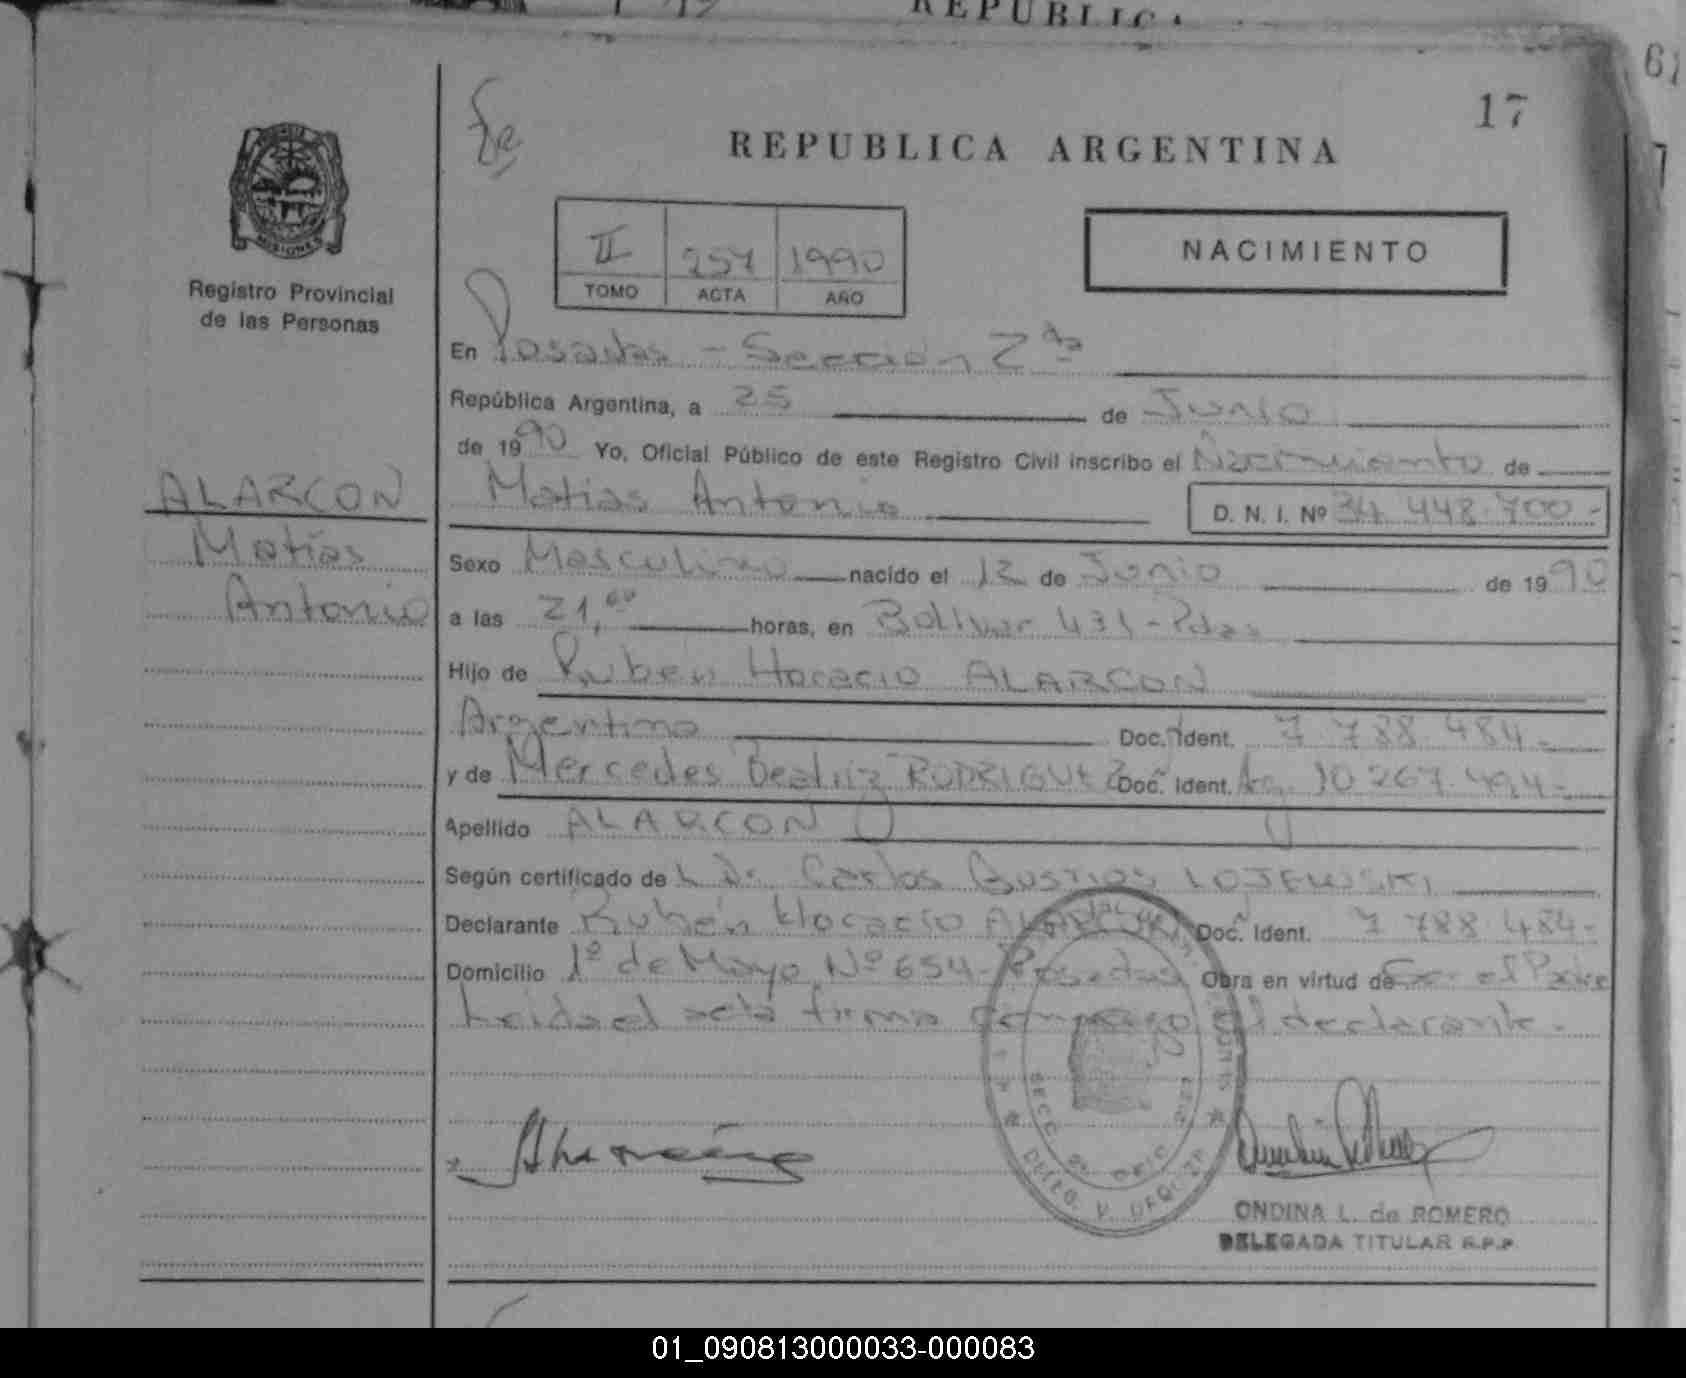 REPUBLICA
61
17
REPUBLICA ARGENTINA
MISIONES
Registro Provincial
de las Personas
II 257 1990
TOMO ACTA AÑO
NACIMIENTO
En Posadas - Sección 2da
República Argentina, a 25 de Junio
de 1990 Yo, Oficial Público de este Registro Civil inscribo el Nacimiento de
ALARCON
Matías
Antonio
Matias Antonio D. N. I. Nº 34 448.700-
Sexo Masculino nacido el 12 de Junio de 1990
a las 21,00 horas, en Bolivar 431 - Pdas
Hijo de Ruben Horacio ALARCON
Argentino Doc. Ident. 7 788 484-
y de Mercedes Beatriz RODRIGUEZ Doc. Ident. Ag. 10 267.494-
Apellido ALARCON
Según certificado de L Dr Carlos Bustios LOJEWSKI
Declarante Rubén Horacio ALARCON Doc. Ident. 7 788.484-
Domicilio 1º de Mayo Nº 654-Posadas Obra en virtud de Ser el Padre
Leida el acta firma conmigo el declarante.
ONDINA L. de ROMERO
DELEGADA TITULAR R.P.P.
01_090813000033-000083